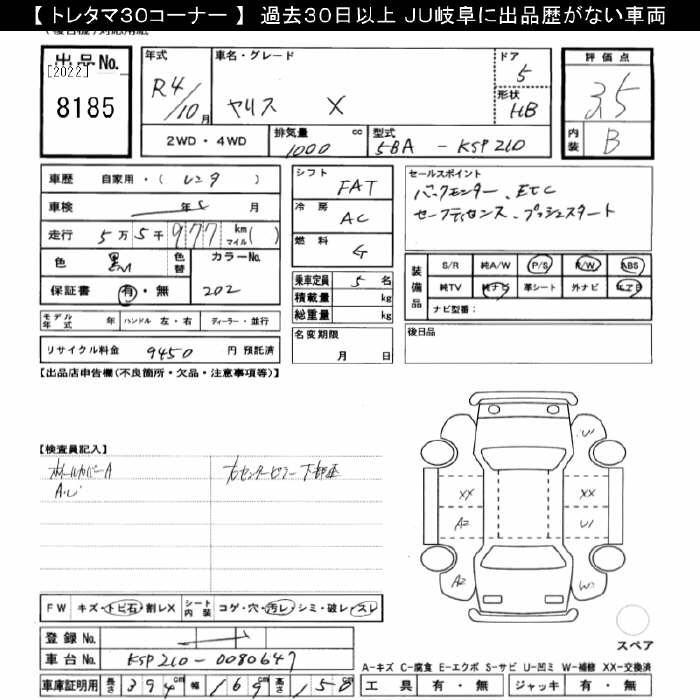 【 トレタマ30コーナー 】 過去30日以上 JU岐阜に出品歴がない車両
出品No.
[2022]
8185
年式
R4/10月
車名・グレード
ヤリス X
ドア
5
形状
HB
評価点
3.5
内装
B
2WD・4WD
排気量
1000 cc
型式
5BA - KSP210
車歴 自家用・( レンタ )
車検 年 月
走行 5万5千977 km マイル( )
色 黒M 色替
カラーNo.
202
保証書 有・無
シフト
FAT
冷房
AC
燃料
G
乗車定員 5 名
積載量 kg
総重量 kg
セールスポイント
バックモニター、ETC
セーフティセンス、プッシュスタート
装備品
S/R 純A/W P/S P/W ABS
純TV 純ナビ 革シート 外ナビ エアB
ナビ型番:
モデル年式 年 ハンドル 左・右 ディーラー・並行
名変期限
月 日
後日品
リサイクル料金 9450 円 預託済
【出品店申告欄(不良箇所・欠品・注意事項等)】
【検査員記入】
ホイールカバーA
右センターピラー下部
U
XX
XX
A2
U1
A2
W
FW キズ・トビ石・割レX
シート内装 コゲ・穴・汚レ・シミ・破レ・スレ
登録 No.
車台 No. KSP210-0080647
車庫証明用 長さ 394cm 幅 169cm 高さ 150cm
スペア
A-キズ C-腐食 E-エクボ S-サビ U-凹ミ W-補修 XX-交換済
工具 有・無 ジャッキ 有・無